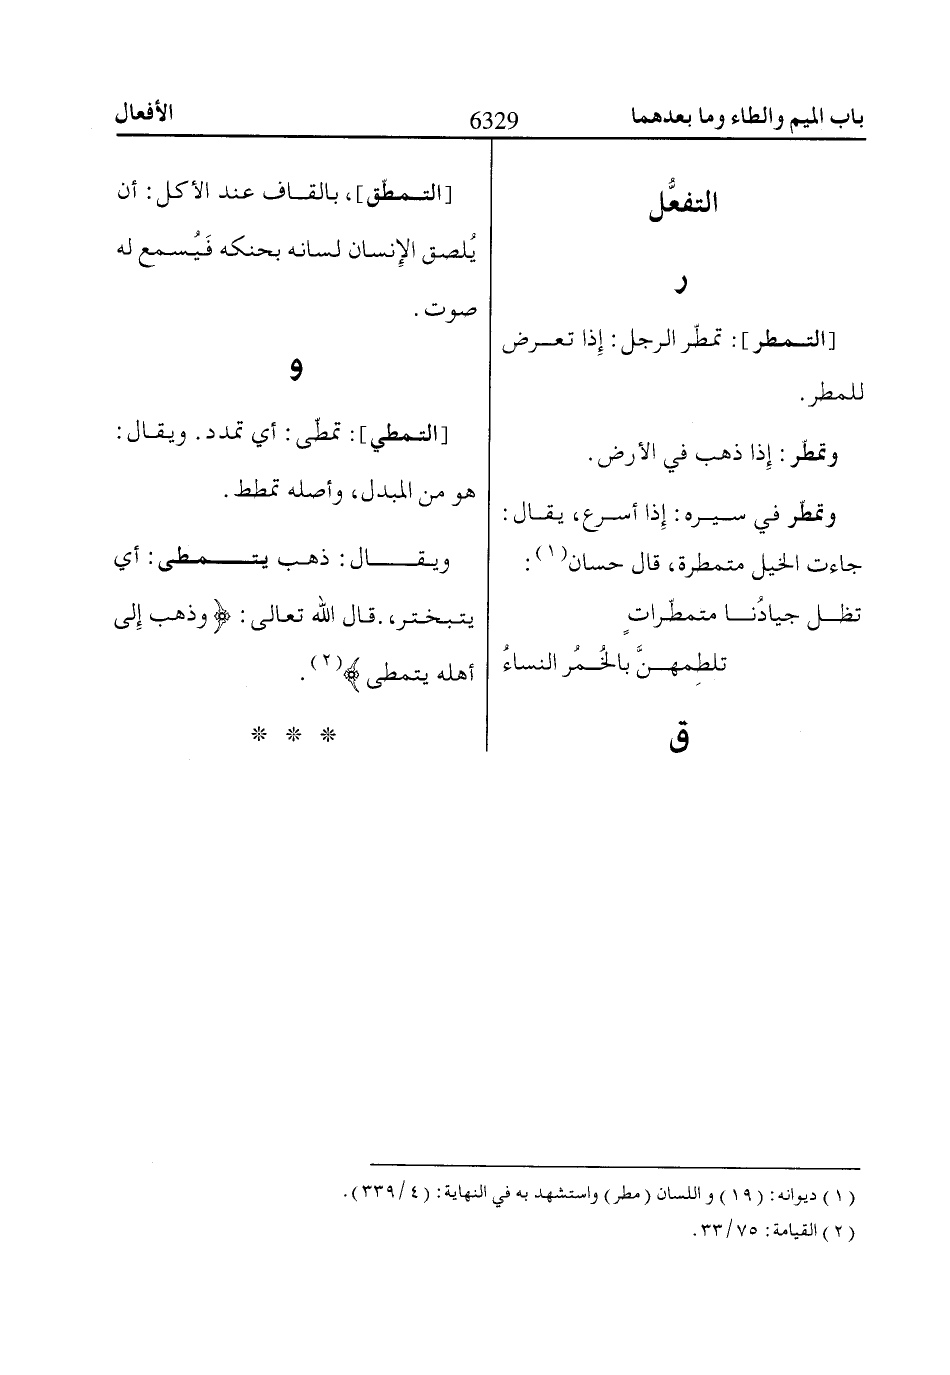 باب الميم والطاء وما بعدهما 6329 الأفعال
التفعُّل
ر
[التـمطر]: تمطّر الرجل: إِذا تعرض
للمطر.
وتمطّر: إِذا ذهب في الأرض.
وتمطّر في سيره: إِذا أسرع، يقال:
جاءت الخيل متمطرة، قال حسان(١):
تظل جيادُنا متمطّراتٍ
تلطِمهنَّ بالخُمُر النساءُ
ق
[التمطّق]، بالقاف عند الأكل: أن
يُلصق الإِنسان لسانه بحنكه فَيُسمع له
صوت.
و
[التمطي]: تمطّى: أي تمدد. ويقال:
هو من المبدل، وأصله تمطط.
ويقال: ذهب يتمطى: أي
يتبختر، .قال الله تعالى: ﴿ وذهب إِلى
أهله يتمطى ﴾(٢).
* * *
(١) ديوانه: (١٩) و اللسان (مطر) واستشهد به في النهاية: (٤/ ٣٣٩).
(٢) القيامة: ٧٥/ ٣٣.